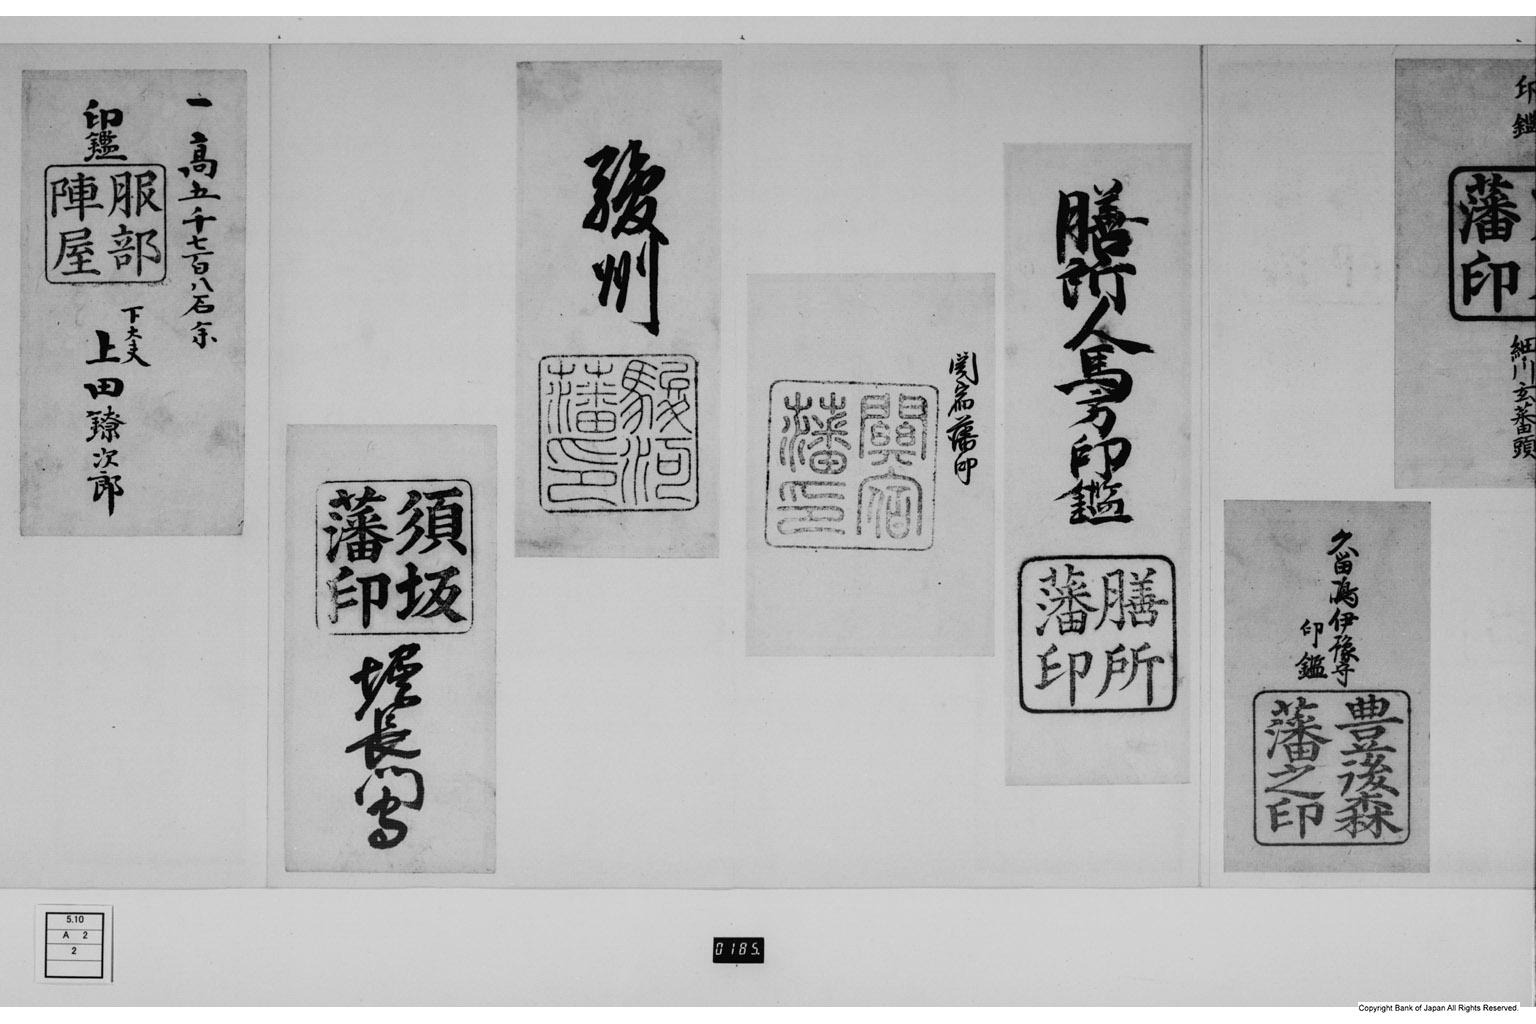 印鑑
藩印
細川玄蕃頭
久留嶋伊豫守
印鑑
豊後森
藩之印
膳所人馬方印鑑
膳所
藩印
関宿藩印
關宿
藩印
駿州
駿河
藩印
須坂
藩印
堀長門守
一高五千七百八石余
印鑑
服部
陣屋
下大夫
上田鐐次郎
5.10
A 2
2
0185
Copyright Bank of Japan All Rights Reserved.